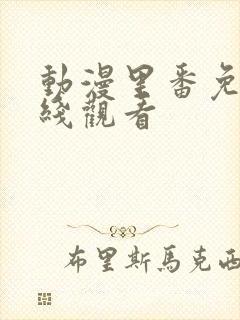 動漫里番免
綫觀看
布里斯馬克西